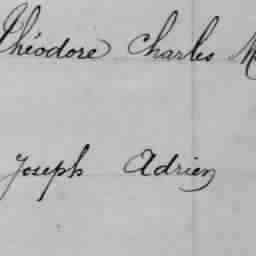 Théodore Charles
Joseph Adrien